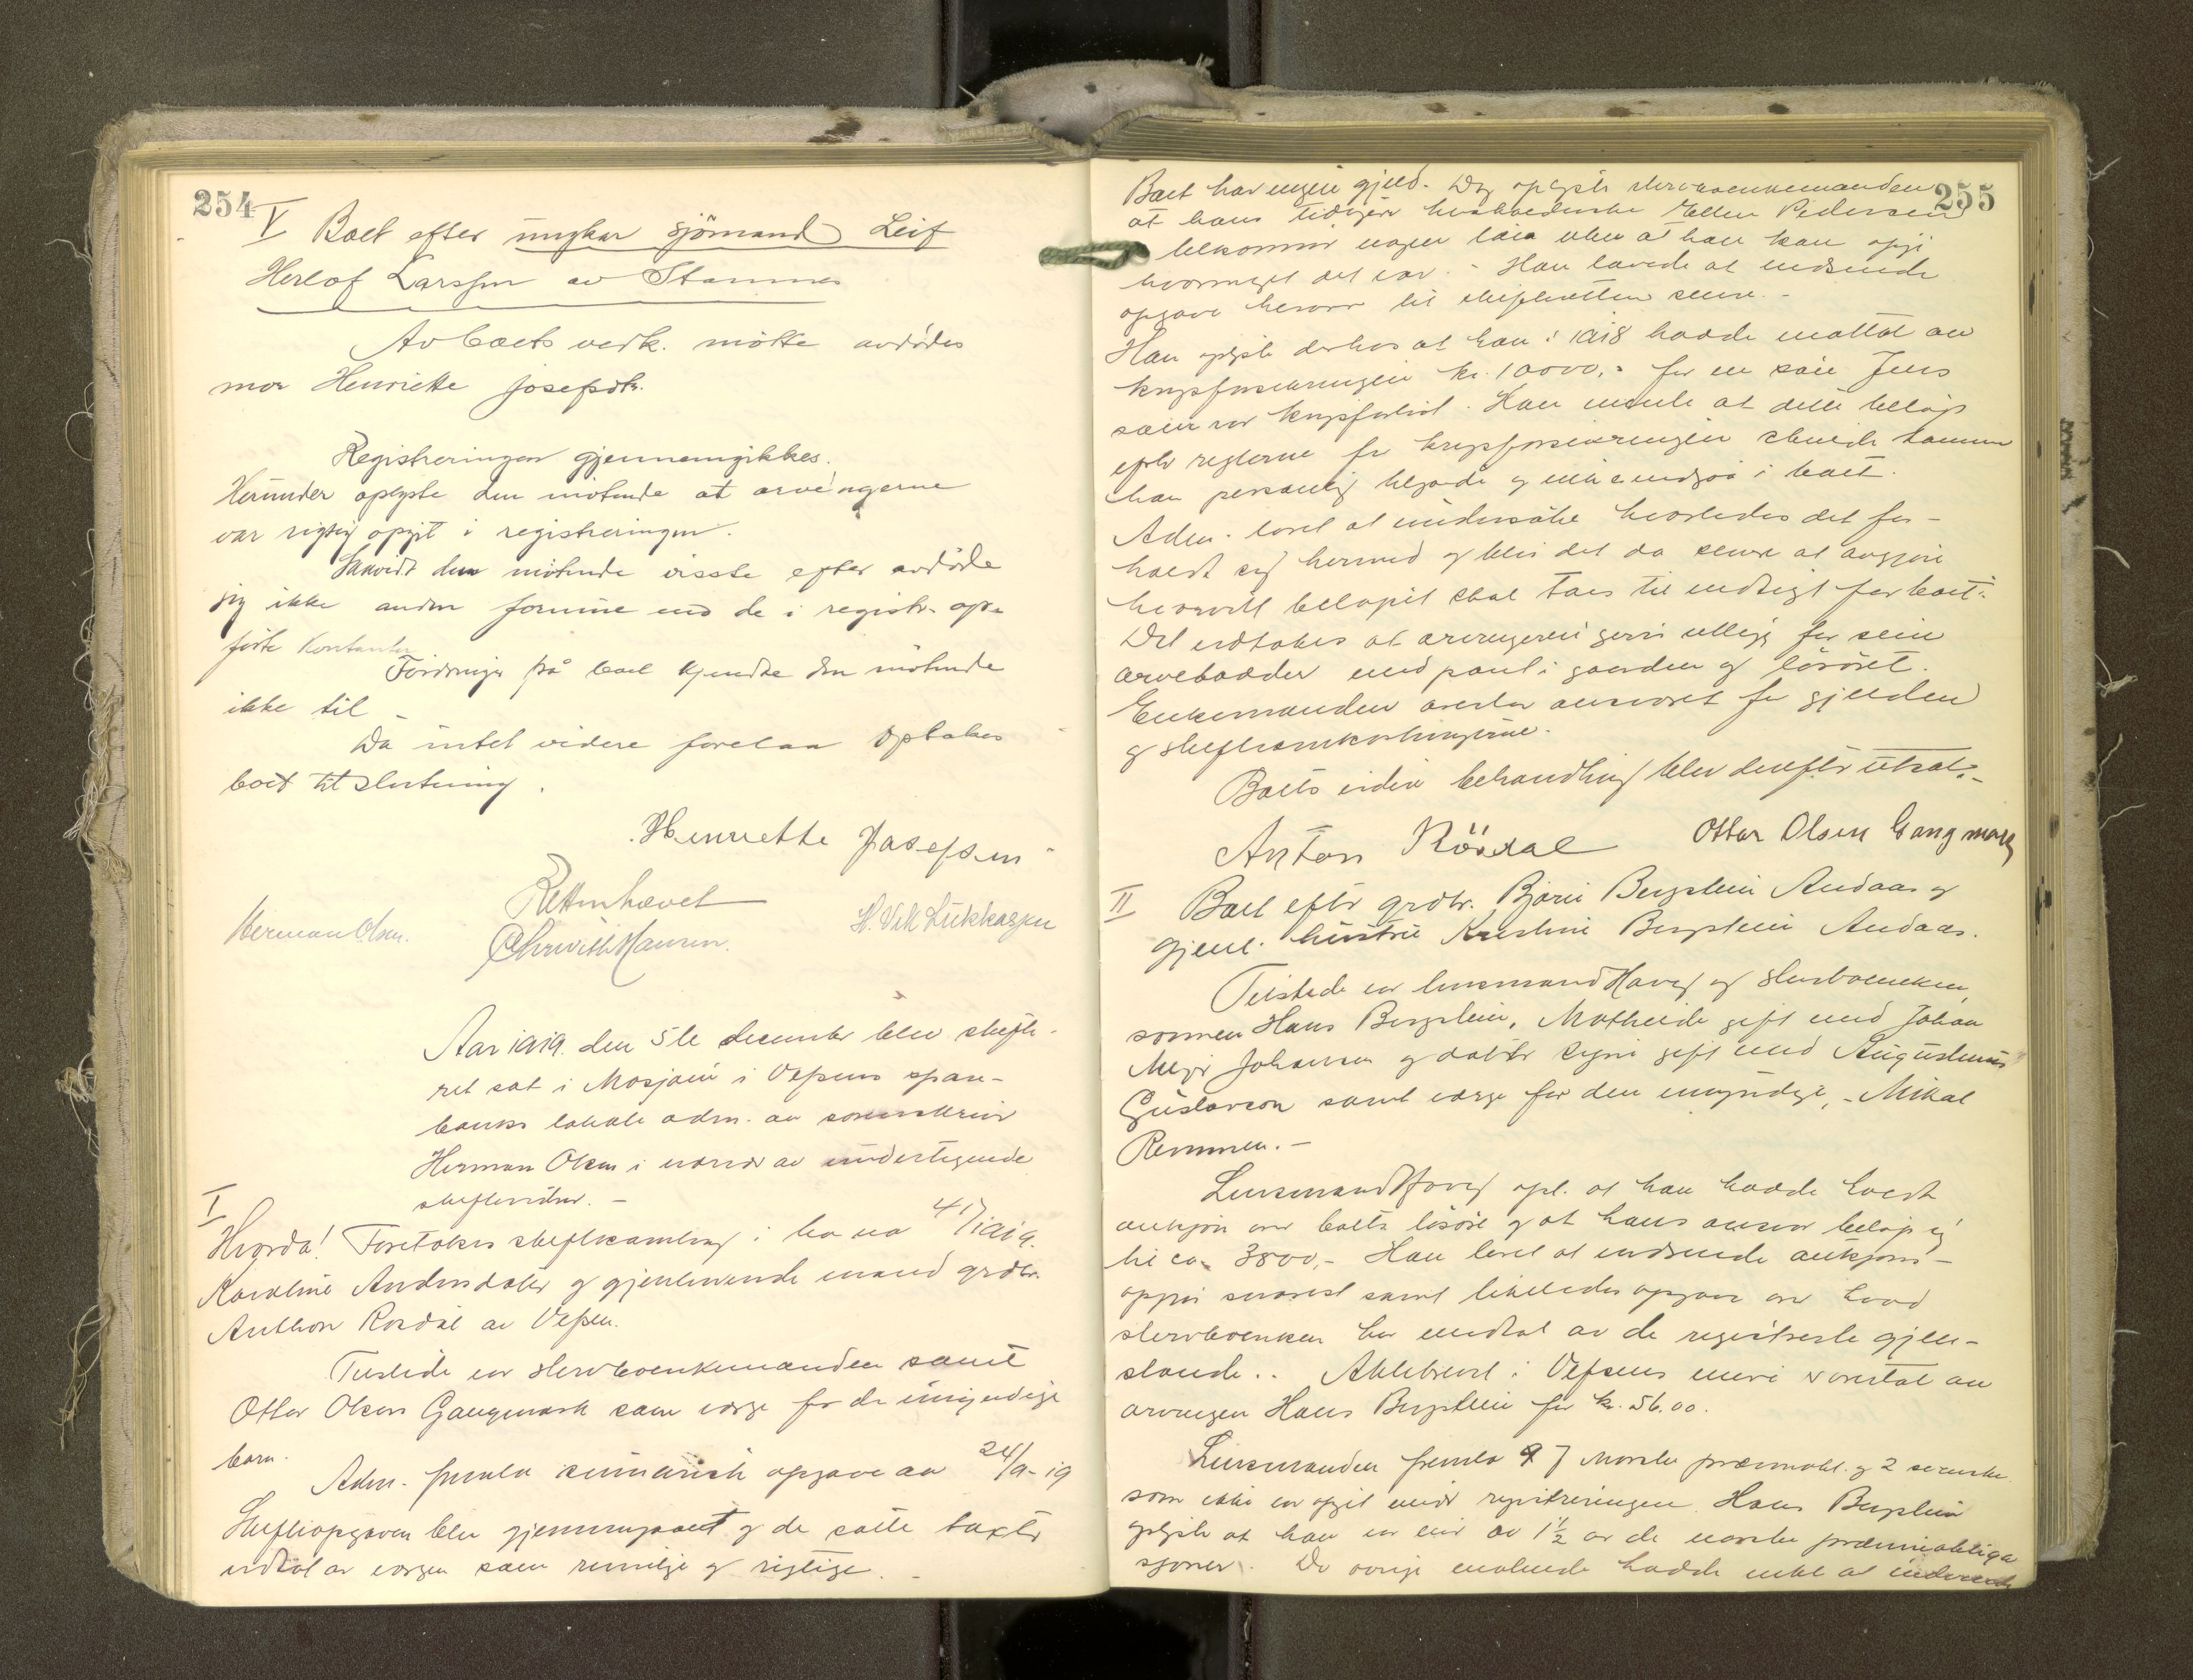 254
V Boet efter ungkar sjömand Leif
Herlof Larssen av Stamnes
Av boets vedk. mötte avdödes
mor Henriette Josefsdtr.
Registreringen gjennemgikkes.
Herunder oplyste den mötende at arvingerne
var rigtig opgit i registreringen.
Saavidt den mötende visste efter avdöde
sig ikke anden formue end de i registr. op-
förte Kontanter
Fordringer på boet kjendte den mötende
ikke til
Da intet videre forelaa optokes
boet til slutning.
Henriette Josefsen
Retten hævet
Herman Olsen.
H. Vik Lukkassen
Aar 1919. den 5te december blev skifte-
ret sat i Mosjöen i Vefsens spare-
banks lokale adm. av sorenskriver
Herman Olsen i nærvær av undertegnede
skiftevidner. -
I
Hvorda! Foretokes skiftesamling i bo no 417/1919.
Karoline Andersdatter og gjenlevende mand grdbr.
Anthon Rosdal av Vefsen.
Tilstede var stervboenkemanden samt
Ottar Olsen Gangmark som verge for de umyndige
barn.
Adm. fremla sumarisk opgave av 24/9-19
Skifteopgaven blev gjennemgaaet og de satte takster
vedtat av vergen som rimelige og rigtige. -
255
Boet har ingen gjeld. Dog oplyste stervboenkemanden
at hans tidligere husholderske Ellen Pedersen
tilkommer nogen lön uten at han kan opgi
hvormeget det var. - Han lovede at indsende
opgave herover til skifteretten senere. -
Han oplyste derhos at han i 1918 hadde mottat av
krigsforsikringen kr. 10000,- for en sön Jens
som var krigsforlist. Han mente at dette belöp
efter reglerne for krigsforsikringen skulde komme
ham personlig tilgode og ikke indgaa i boet.
Adm. lovet at undersöke hvorledes det for-
holdt sig hermed og blir det da senere at avgjöre
hvorvidt belöpet skal taes til indtægt for boet.
Det vedtokes at arvingerne gives utlæg for sine
arvelodder med pant i gaarden og lösöret.
Enkemanden overtar ansvaret for gjælden
og skifteomkostningerne.
Boets videre behandling blev derefter utsat. -
Anton Rösdal Ottar Olsen Gangmark
II Boet efter grdbr. Bjarne Bergstein Andaas og
gjenl. hustru Kristine Bergstein Andaas.
Tilstede var lensmand Haver og stervboenken,
sönnen Hans Bergstein, Mathilde gift med Johan
Meyer Johansen og datter Signe gift med Augustinus
Gustavson samt verge for den umyndige, - Mikal
Remmen. -
Lensmand Haver opl. at han hadde holdt
auksjon over boets lösöre og at hans ansvar belöp sig
til ca. 3800,- Han lovet at indsende auksjons-
opgjör snarest samt likeledes opgave over hvad
stervboenken har mottat av de registrerte gjen-
stande. Aktiebrevet i Vefsens meieri overtat av
arvingen Hans Bergstein for kr. 56.00.
Lensmanden fremla 7 norske præmieobl. og 2 svenske
som ikke var opgit under registreringen. Hans Bergstein
oplyste at han var eier av 1½ av de norske præmieobliga
sjoner. De övrige mötende hadde intet at indvende